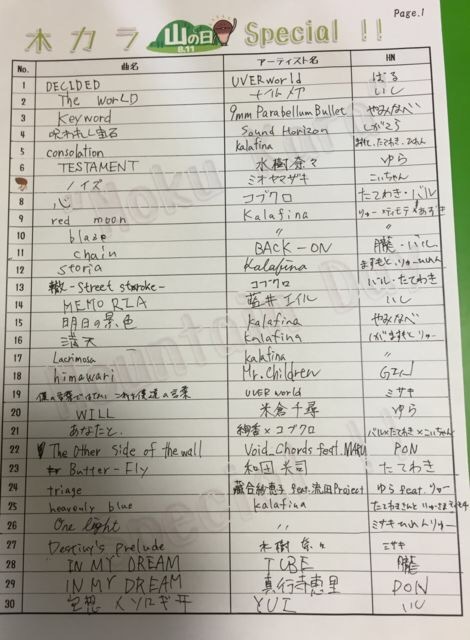 Page.1
木カラ 山の日 8.11 Special !!
No. 曲名 アーティスト名 HN
1 DECIDED UVERworld ばる
2 The WORLD ナイトメア いし
3 Keyword 9mm Parabellum Bullet やみなべ
4 呪われし宝石 Sound Horizon しがこう
5 consolation kalafina
6 TESTAMENT 水樹奈々 ゆら
7 ノイズ ミオヤマザキ こいちゃん
8 心 コブクロ たてわき・バル
9 red moon Kalafina
10 blaze 〃
11 chain BACK-ON 朧・バル
12 storia Kalafina
13 轍-street stroke- コブクロ バル・たてわき
14 MEMORIA 藍井エイル いし
15 明日の景色 kalafina やみなべ
16 満天 kalafina
17 Lacrimosa kalafina 〃
18 himawari Mr.Children GEN
19 僕の言葉ではない これは僕達の言葉 UVERworld ミサキ
20 WILL 米倉千尋 ゆら
21 あなたと 絢香×コブクロ バル×たてわき×こいちゃん
22 The Other side of the wall Void_Chords feat.MARU PON
23 Butter-Fly 和田光司 たてわき
24 triage feat.流田Project ゆら feat.りゅー
25 heavenly blue kalafina
26 One light 〃
27 Destiny's prelude 水樹奈々 ミサキ
28 IN MY DREAM TUBE 朧
29 IN MY DREAM 真行寺恵里 PON
30 空想メソロギヰ YUI いし